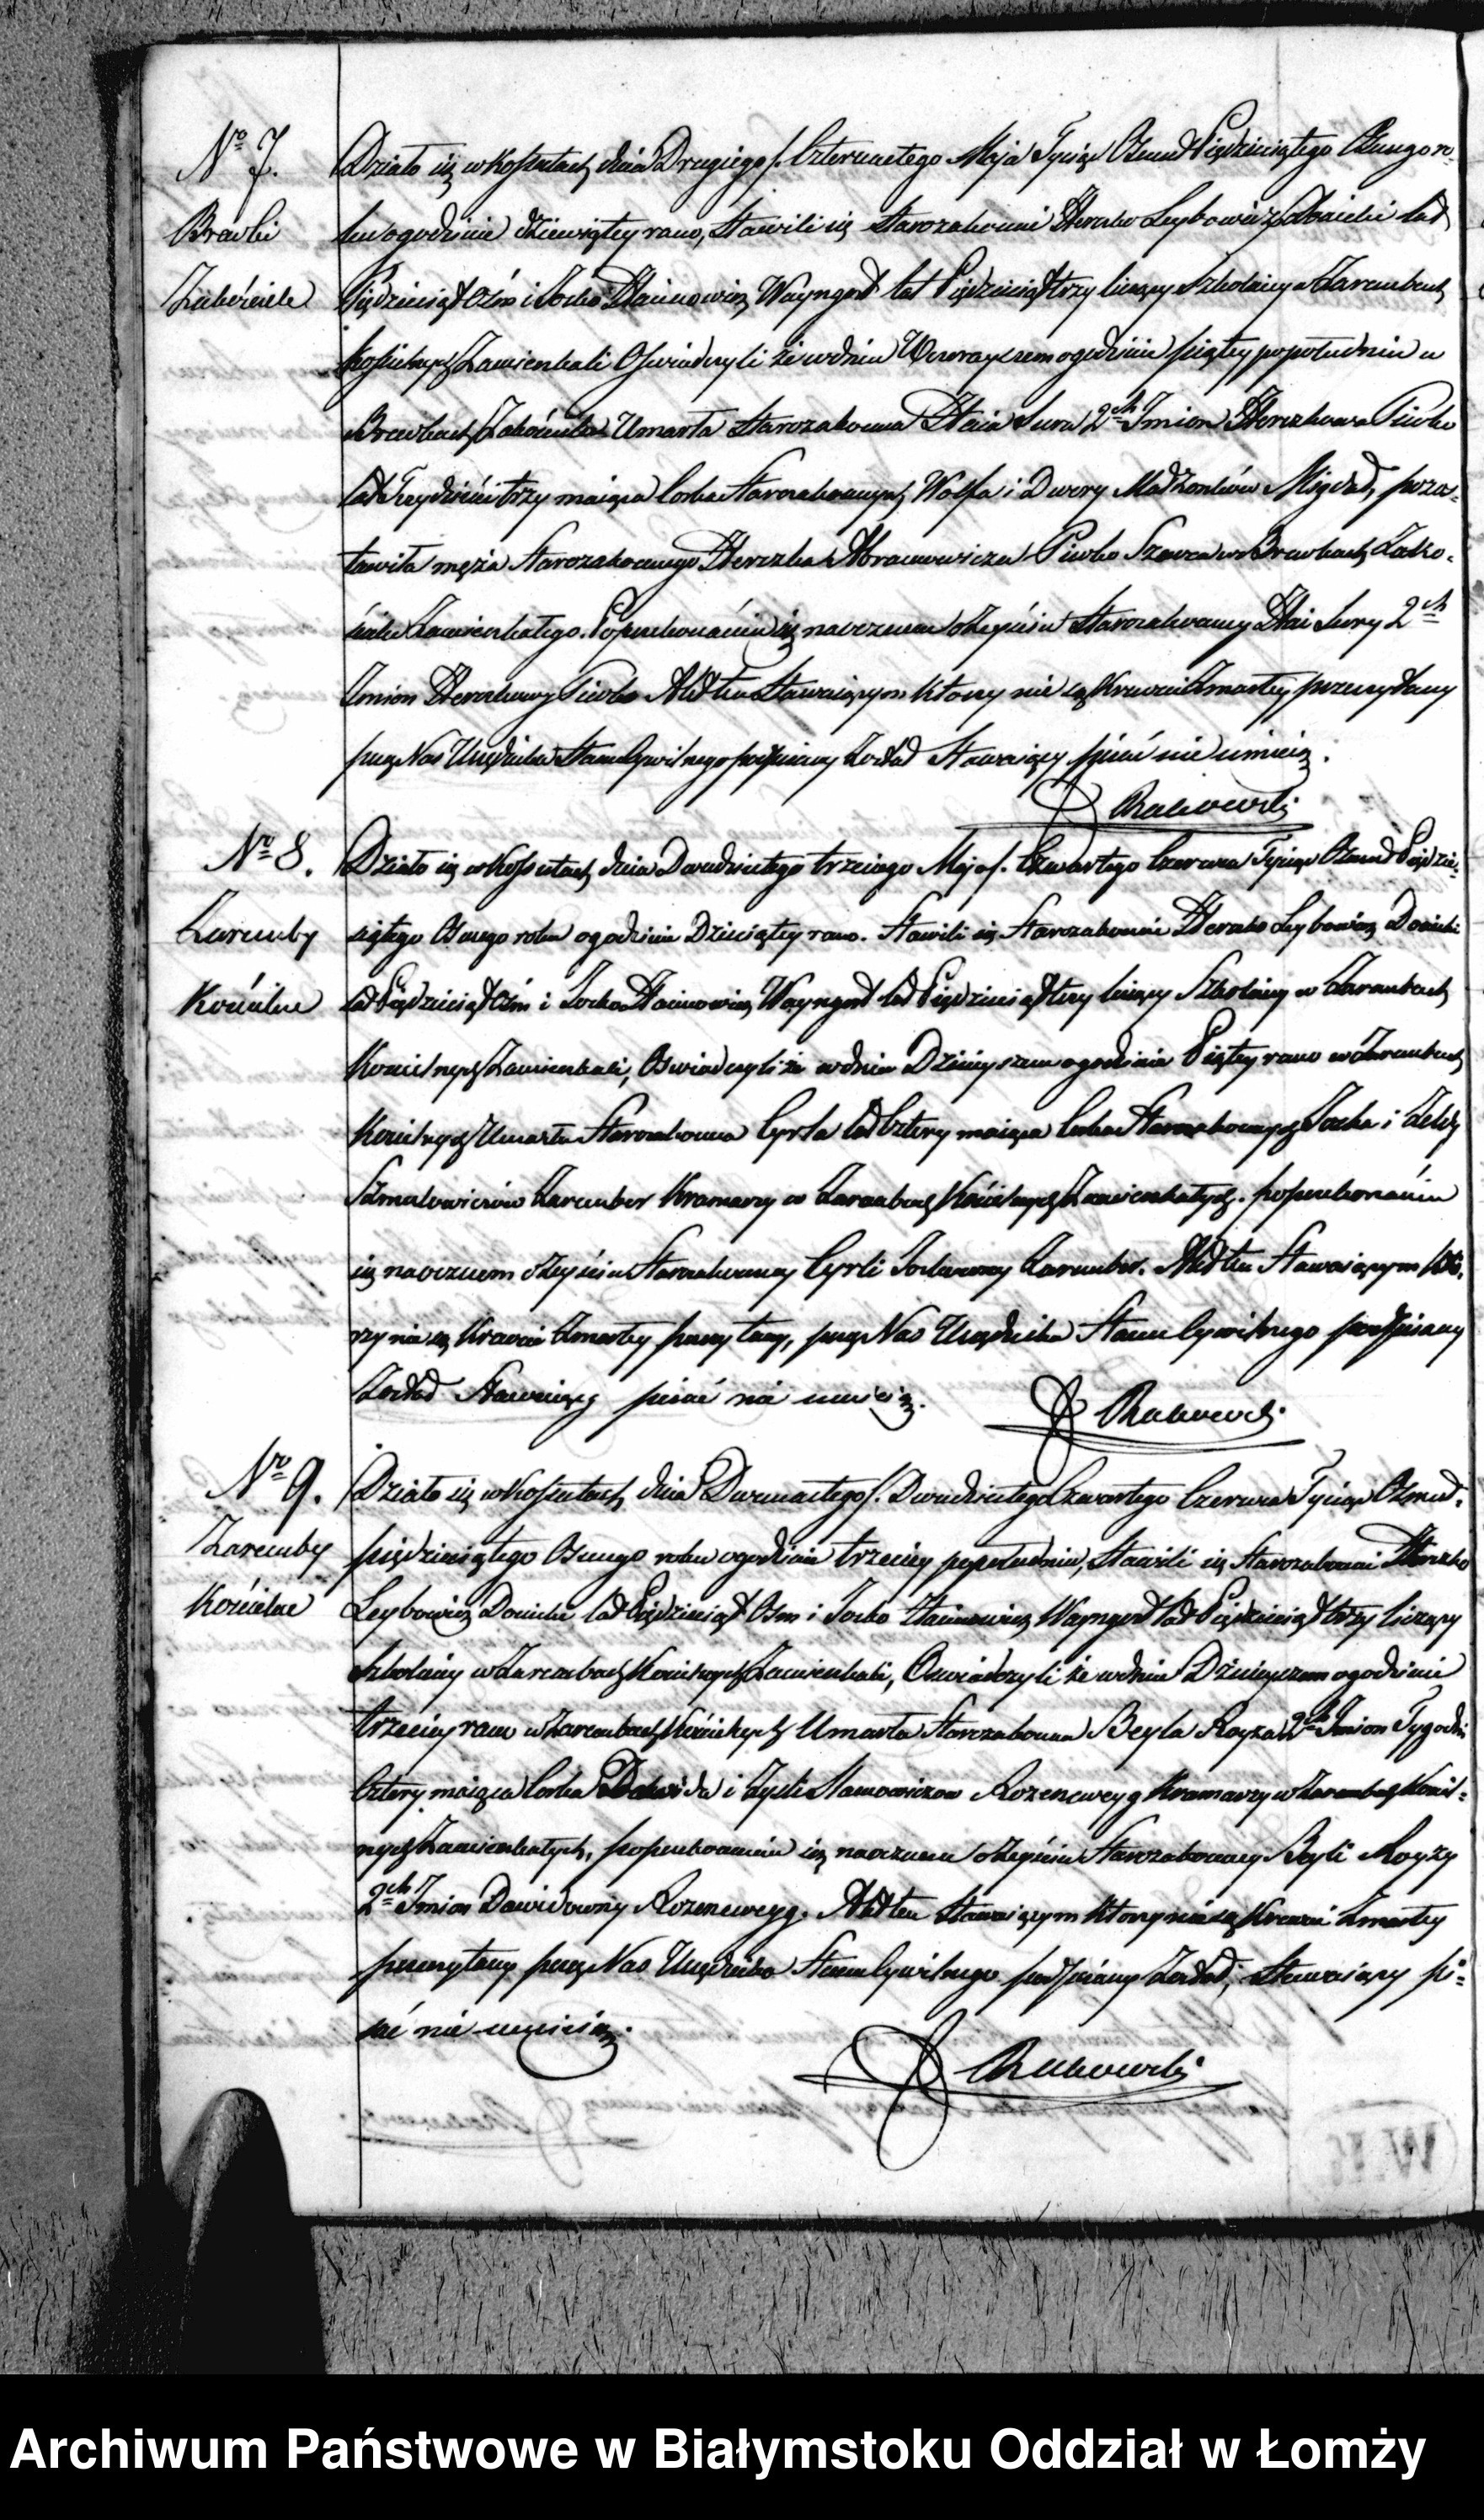 No 7.
Brewki
Zakościele
Działo się w Kossutach dnia Drugiego/: Czternastego Maja Tysiąc Ośmset Pięćdziesiątego Osmego ro-
ku o godzinie dziewiątey rano, Stawili się Starozakonni Herszko Leybowicz lat
Pięćdziesiąt Ośm i Jocko Haimowicz Wayngort lat Pięćdziesiąt trzy liczący Szkolnicy w Zarembach
Kościelnych Zamieszkali Oświadczyli że w dniu Wczorayszem o godzinie piątey popołudniu w
Brewkach Zakościele Umarła Starozakonna Haia Sura 2ch Imion Herszkowa Piwko
lat Trzydzieści trzy maiąca Corka Starozakonnych Wolfa i Dwory Małżonków Migdał, pozo-
tawiła męża Starozakonnego Herszka Abramowicza Piwko Szewca w Brewkach Zako-
ściele Zamieszkałego. Poprzekonaniu się naocznem o Zeyściu Starozakonney Hai Sury 2ch
Imion Herszkowy Piwko Akt ten Stawaiącym którzy nie są Krewni Zmarłey przeczytany
przez Nas Urzędnika Stanu Cywilnego podpisany Został Stawaiący pisać nie umieią.
Rakowski
No 8.
Zaremby
Kościelne
Działo się w Kossutach dnia Dwudziestego trzeciego Maja/: Czwartego Czerwca Tysiąc Ośmset Pięćdzie-
siątego Osmego roku o godzinie Dziesiątey rano. Stawili się Starozakonni Herszko Leybowicz
lat Pięćdziesiąt Ośm i Jocko Haimowicz Wayngort lat Pięćdziesiąt trzy liczący Szkolnicy w Zarembach
Kościelnych Zamieszkali, Oświadczyli że w dniu Dzisieyszem o godzinie Piątey rano w Zarembach
Kościelnych Umarła Starozakonna Cyrla lat Cztery maiąca Corka Starozakonnych Jocka i Zeldy
Szmulowiczów Zarember Kramarzy w Zarembach Kościelnych Zamieszkałych. poprzekonaniu
się naocznem o Zeyściu Starozakonney Cyrli Jockowny Zarember. Akt ten Stawaiącym któ-
rzy nie są Krewni Zmarłey przeczytany, przez Nas Urzędnika Stanu Cywilnego podpisany
Został Stawaiący pisać nie umieią.
Rakowski
No 9.
Zaremby
Kościelne
Działo się w Kossutach dnia Dwunastego/: Dwudziestego Czwartego Czerwca Tysiąc Ośmset
pięćdziesiątego Osmego roku o godzinie trzeciey popołudniu, Stawili się Starozakonni Herszko
Leybowicz lat Pięćdziesiąt Ośm i Jocko Haimowicz Wayngort lat Pięćdziesiąt trzy liczący
Szkolnicy w Zarembach Kościelnych Zamieszkali, Oświadczyli że w dniu Dzisieyszem o godzinie
trzeciey rano w Zarembach Kościelnych Umarła Starozakonna Beyla Royza 2ch Imion Tygodni
Cztery maiąca Corka Dawida i Rozencweyg Kramarzy w Zarembach Kościel-
nych Zamieszkałych, poprzekonaniu się naocznem o Zeyściu Starozakonney Beyli Royzy
2ch Imion Dawidowny Rozencweyg. Akt ten Stawaiącym którzy nie są Krewni Zmarłey
przeczytany przez Nas Urzędnika Stanu Cywilnego podpisany Został, Stawaiący pi-
sać nie umieią.
Rakowski
Archiwum Państwowe w Białymstoku Oddział w Łomży